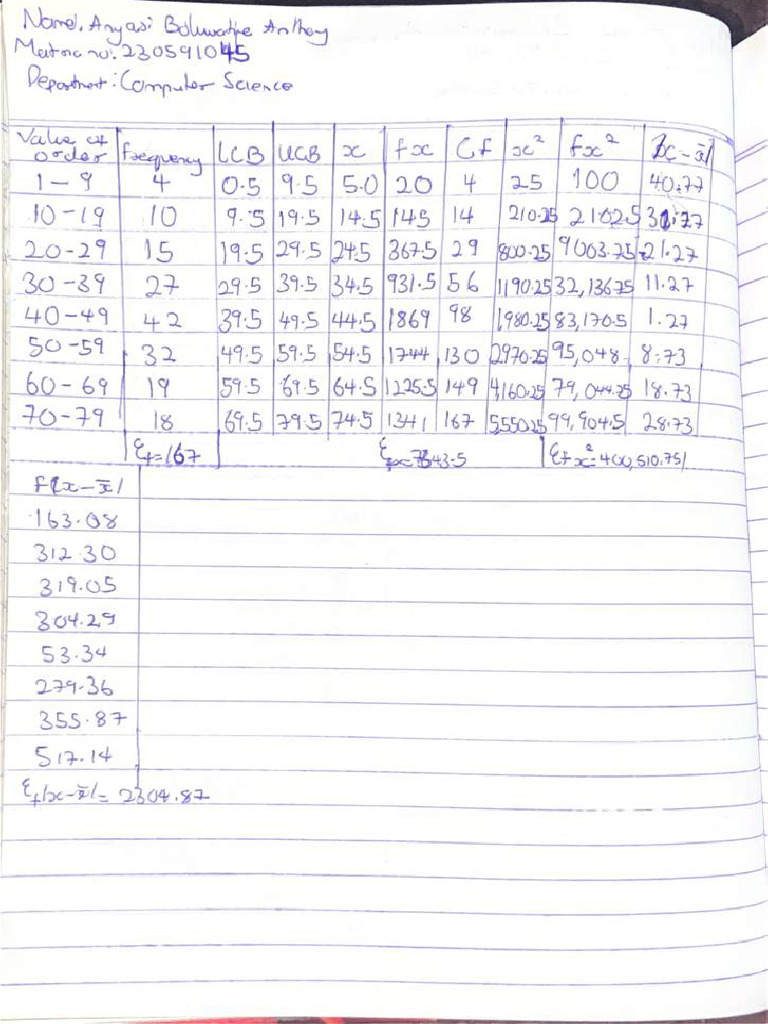 Name: Anyasi Boluwatife Anthony
Matric no: 230591045
Department: Computer Science
Value of order Frequency LCB UCB x fx Cf x² fx² |x-x̄|
1-9 4 0.5 9.5 5.0 20 4 25 100 40.77
10-19 10 9.5 19.5 14.5 145 14 210.25 2102.5 31.27
20-29 15 19.5 29.5 24.5 367.5 29 600.25 9003.75 21.27
30-39 27 29.5 39.5 34.5 931.5 56 1190.25 32,136.75 11.27
40-49 42 39.5 49.5 44.5 1869 98 1980.25 83,170.5 1.27
50-59 32 49.5 59.5 54.5 1744 130 2970.25 95,048 8.73
60-69 19 59.5 69.5 64.5 1225.5 149 4,160.25 79,044.75 18.73
70-79 18 69.5 79.5 74.5 1341 167 5,550.25 99,904.5 28.73
Σf=167 Σfx=7643.5 Σfx²=400,510.75
f|x-x̄|
163.08
312.30
319.05
304.29
53.34
279.36
355.87
517.14
Σf|x-x̄|= 2304.87